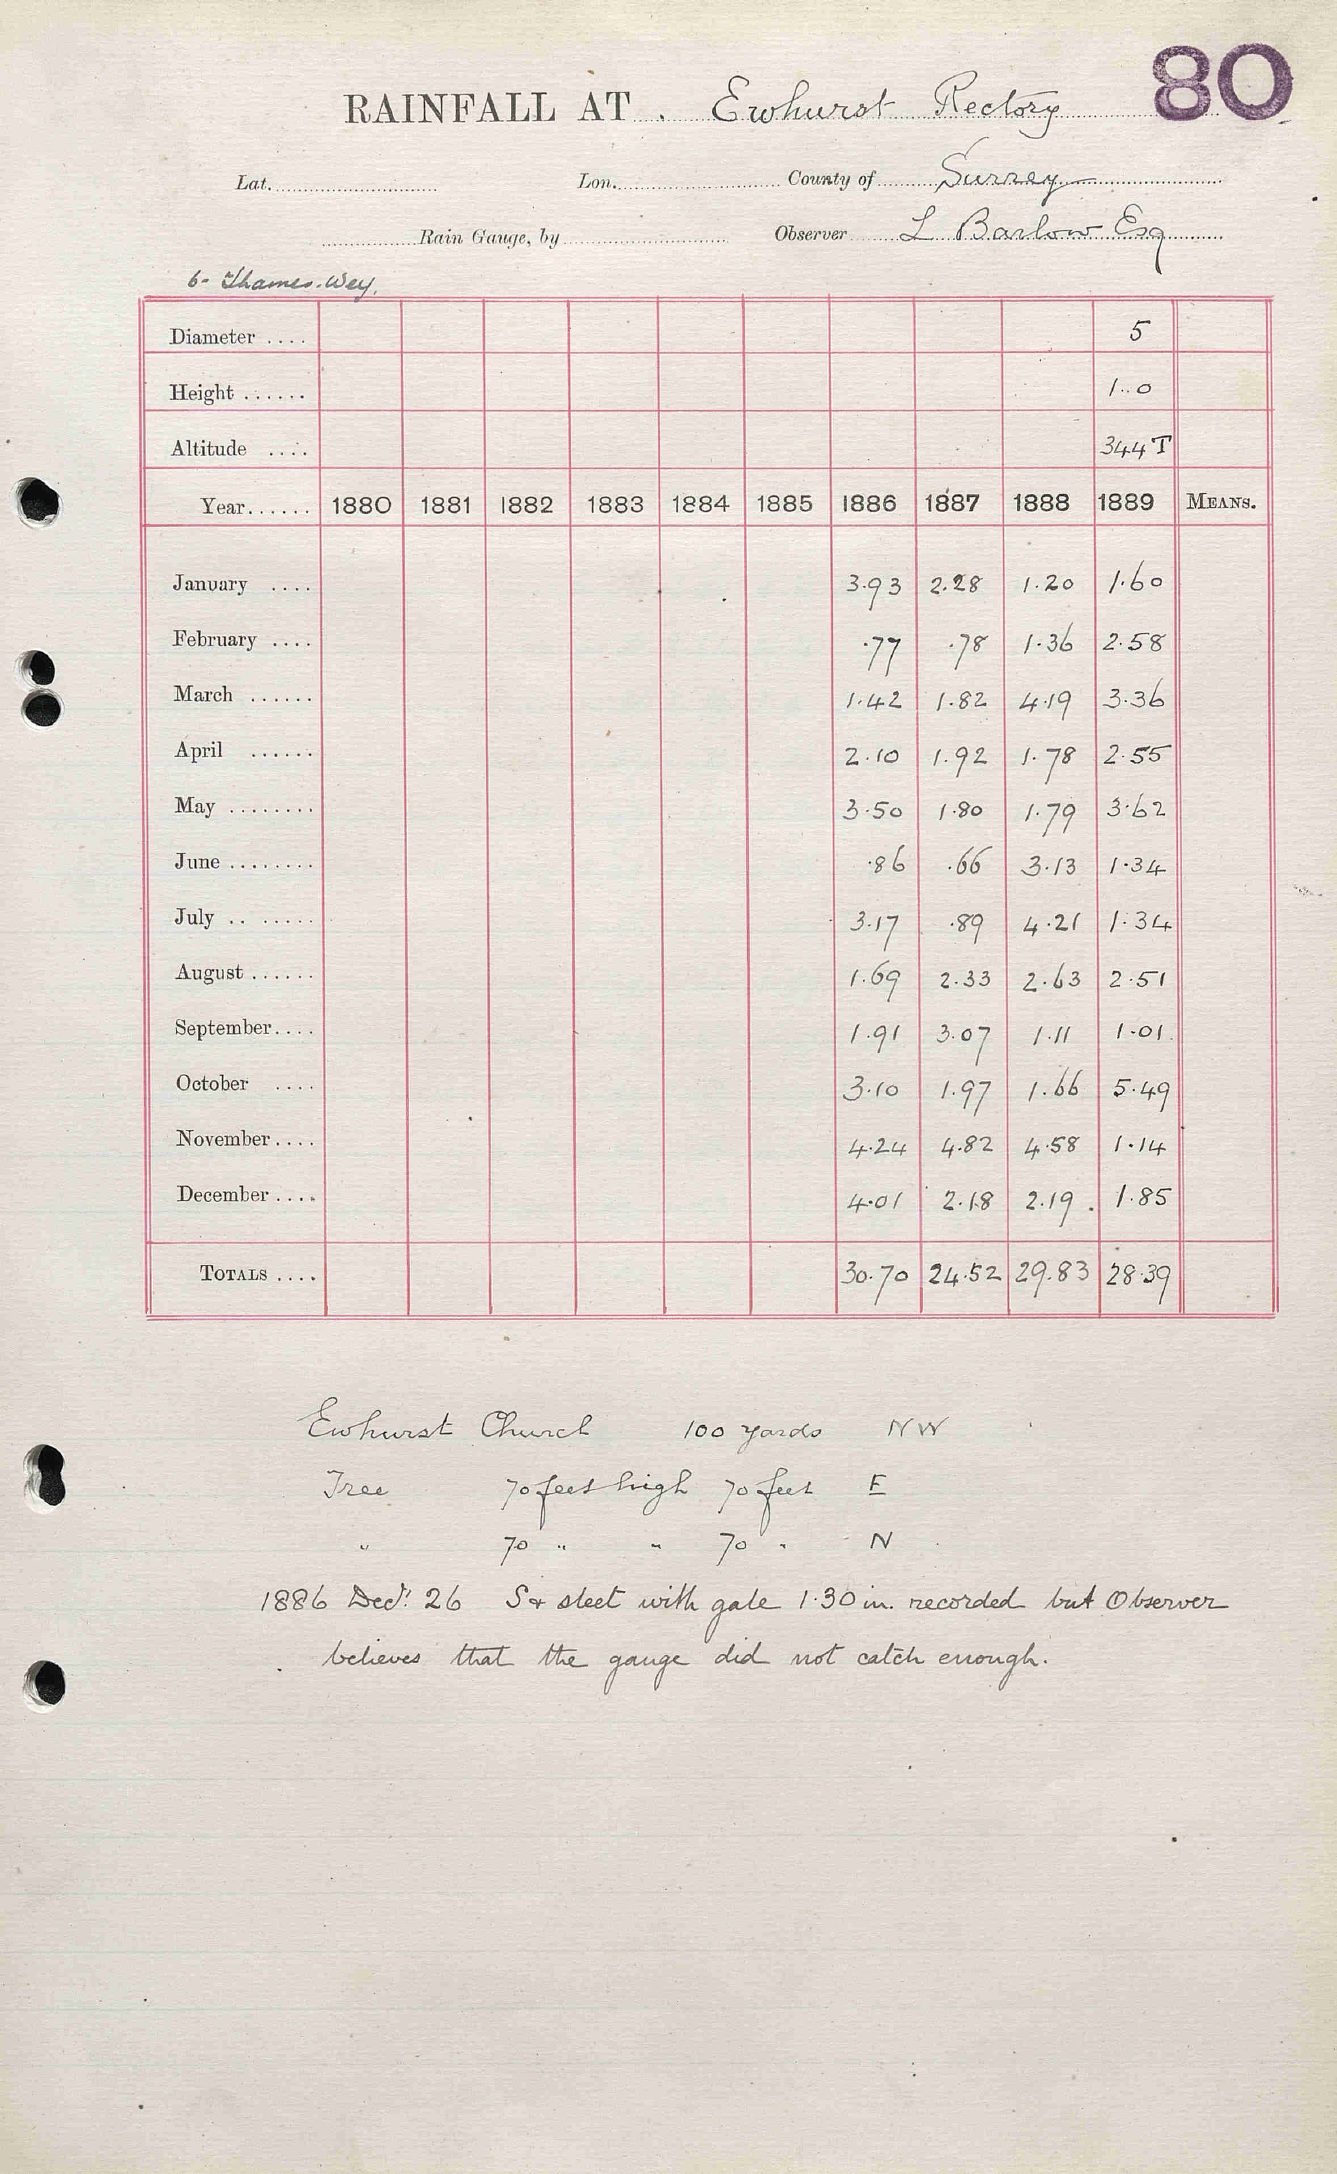 80
RAINFALL AT . Ewhurst Rectory
Lat. Lon. County of Surrey
Rain Gauge, by Observer L Barlow Esq
6- Thames. Wey.
Diameter .... 5
Height ...... 1..0
Altitude .... 344 T
Year...... 1880 1881 1882 1883 1884 1885 1886 1887 1888 1889 MEANS.
January .... 3.93 2.28 1.20 1.60
February .... .77 .78 1.36 2.58
March ...... 1.42 1.82 4.19 3.36
April ...... 2.10 1.92 1.78 2.55
May ........ 3.50 1.80 1.79 3.62
June ........ .86 .66 3.13 1.34
July .. ..... 3.17 .89 4.21 1.34
August ...... 1.69 2.33 2.63 2.51
September.... 1.91 3.07 1.11 1.01
October .... 3.10 1.97 1.66 5.49
November.... 4.24 4.82 4.58 1.14
December .... 4.01 2.18 2.19 . 1.85
TOTALS .... 30.70 24.52 29.83 28.39
Ewhurst Church 100 yards NW
Tree 70 feet high 70 feet E
" 70 " " 70 " N
1886 Decr. 26 S & sleet with gale 1.30 in. recorded but Observer
believes that the gauge did not catch enough.